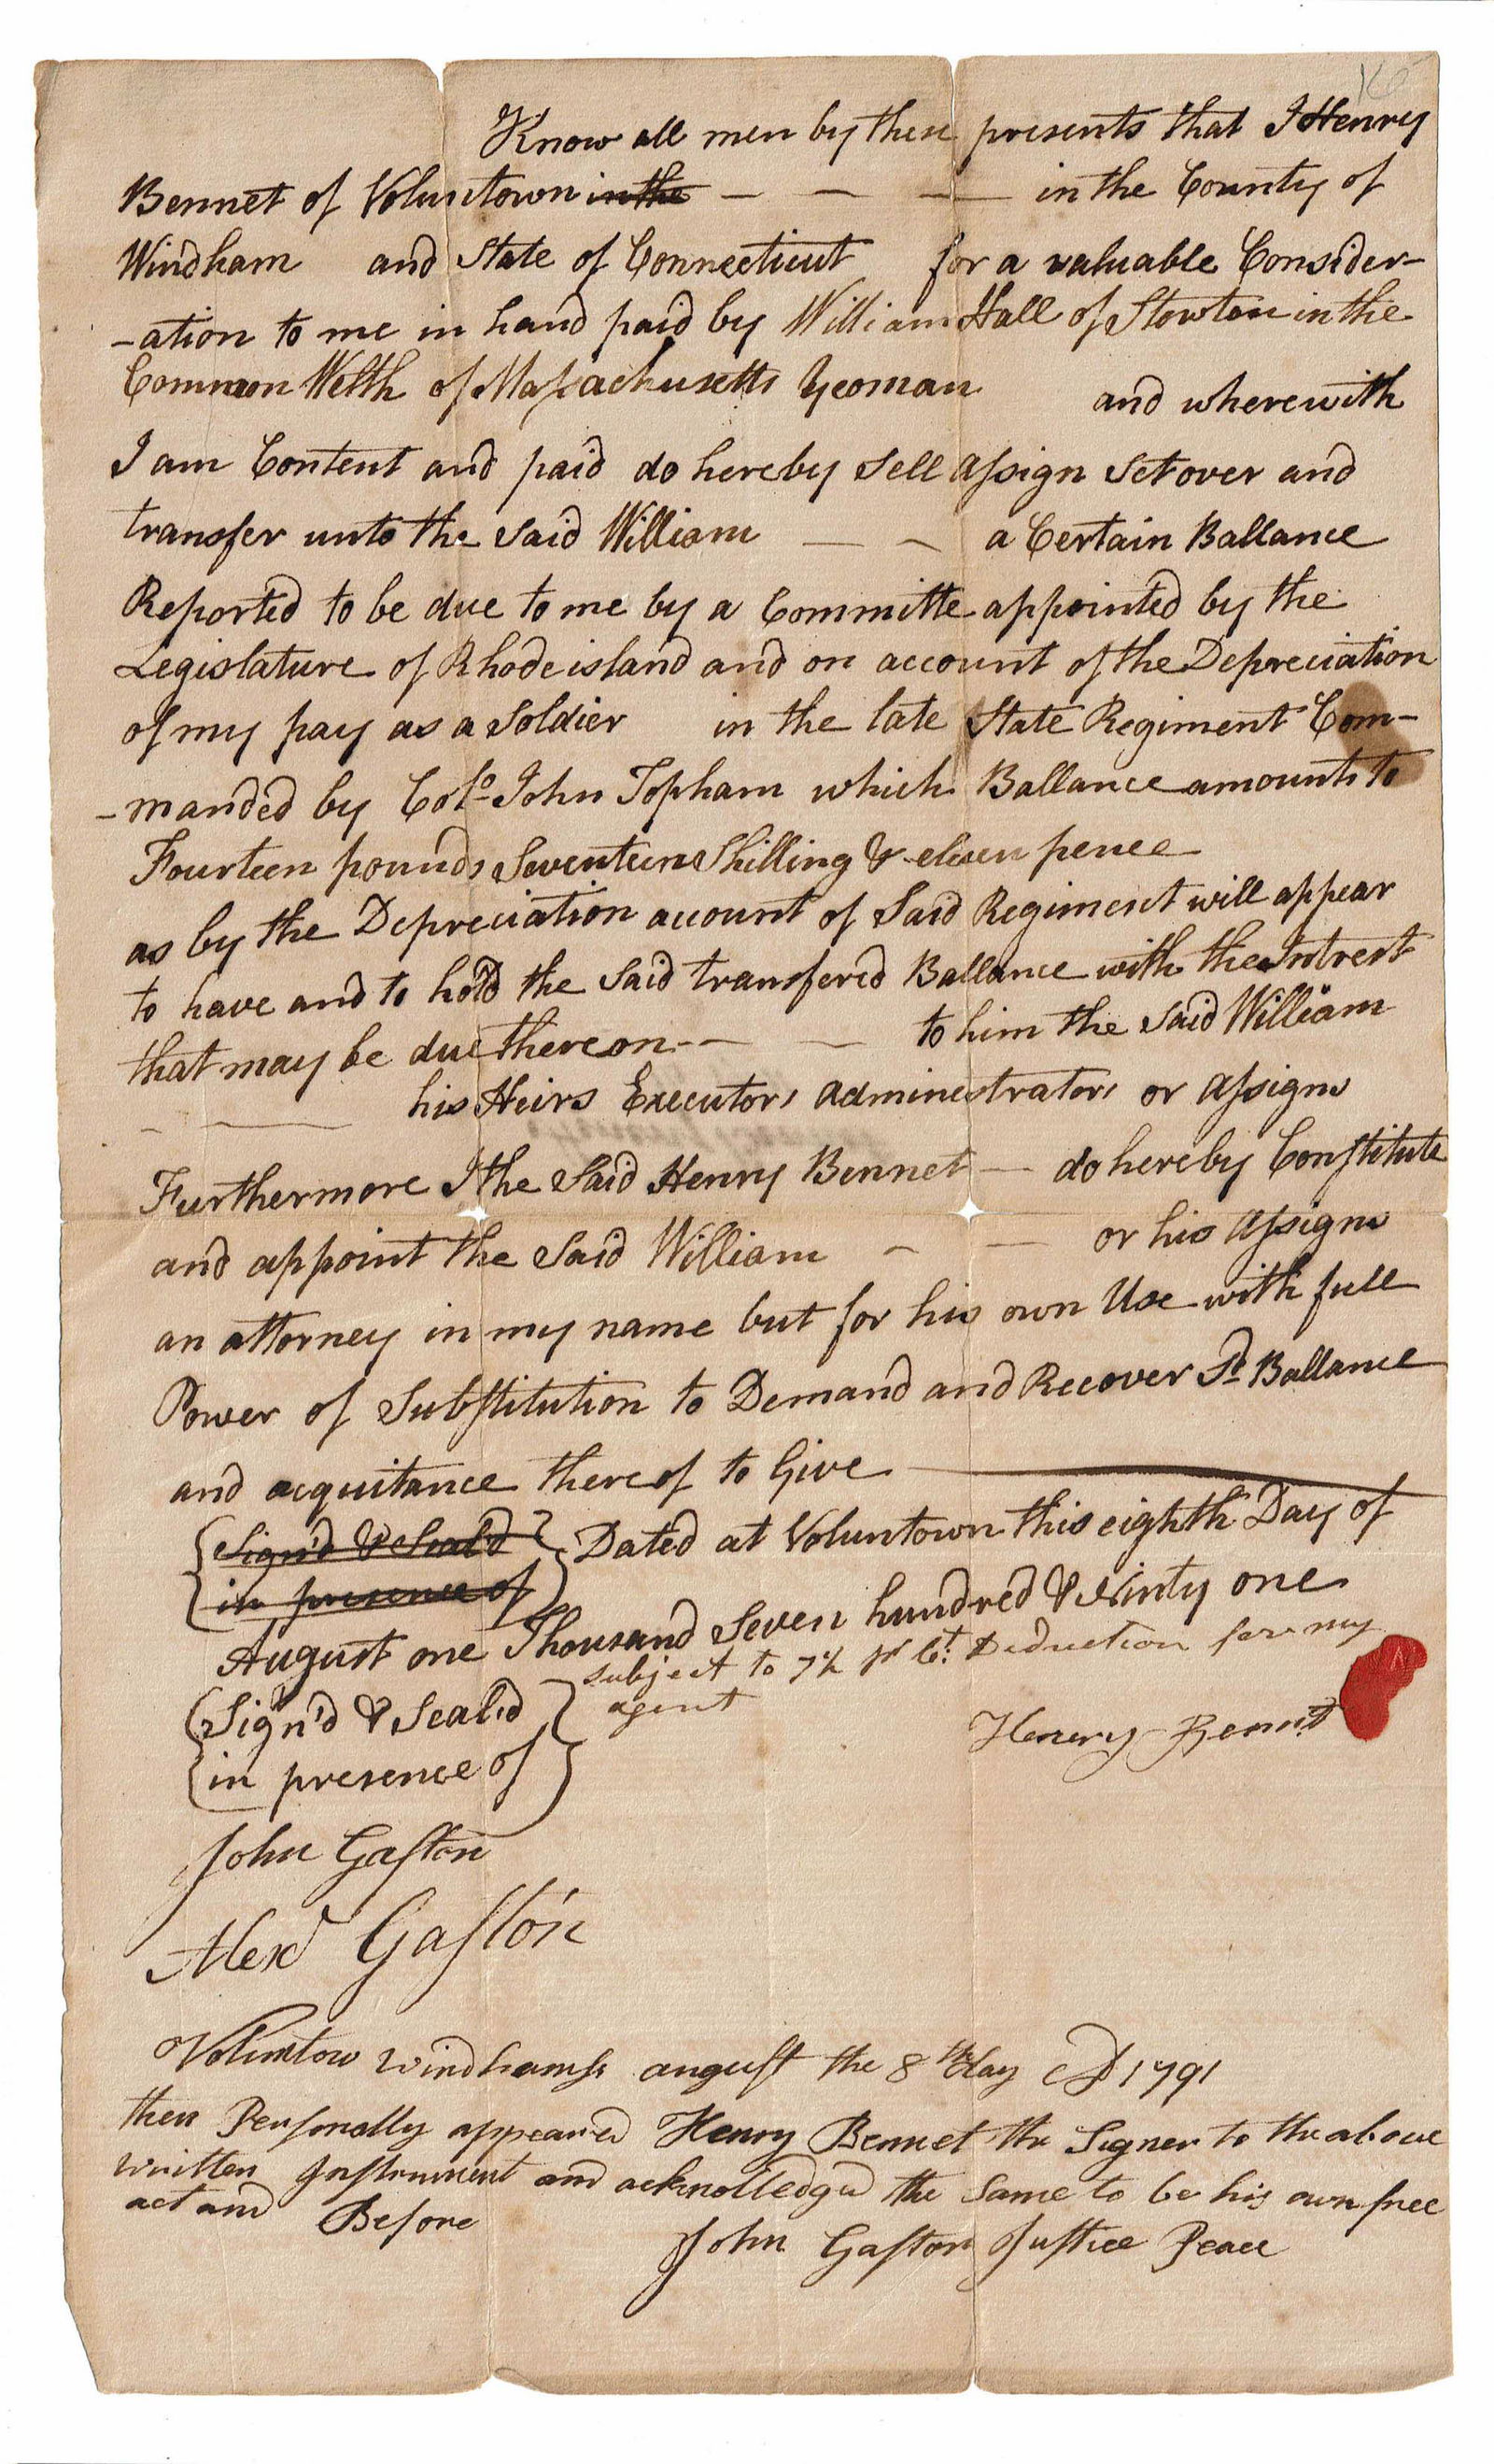 Know all men by these presents that I Henry
Bennet of Voluntown in the — — — in the County of
Windham and State of Connecticut for a valuable Consider-
-ation to me in hand paid by William Hall of in the
Common Welth of Massachusetts Yeoman and wherewith
I am Content and paid do hereby sell assign set over and
transfer unto the said William — — a Certain Ballance
Reported to be due to me by a Committe appointed by the
Legislature of Rhode island and on account of the Depreciation
of my pay as a Soldier in the late State Regiment Com-
-manded by Colo John Topham which Ballance amounts to
Fourteen pounds Seventeen Shilling & eleven pence
as by the Depreciation account of Said Regiment will appear
to have and to hold the Said transfered Ballance with the Intrest
that may be due thereon -- — to him the said William
- — his Heirs Executors administrators or assigns
Furthermore I the Said Henry Bennet — do hereby Constitute
and appoint the Said William - — or his assigns
an attorney in my name but for his own Use with full
Power of Substitution to Demand and Recover Sd Ballance
and acquitance there of to Give —
Sign'd & Seal'd Dated at Voluntown this eighth Day of
in presence of
August one Thousand Seven hundred & Ninty one
subject to 7½ pr Ct: Deduction for my
Sign'd & Seal'd agent
Henery Bennit
in presence of
John Gaston
Alexd Gaston
Voluntow Windham ss august the 8th day AD 1791
then Personally appeared Henry Bennet the Signer to the above
written Instrument and acknolledgd the Same to be his own free
act and Before
John Gaston Justice Peace